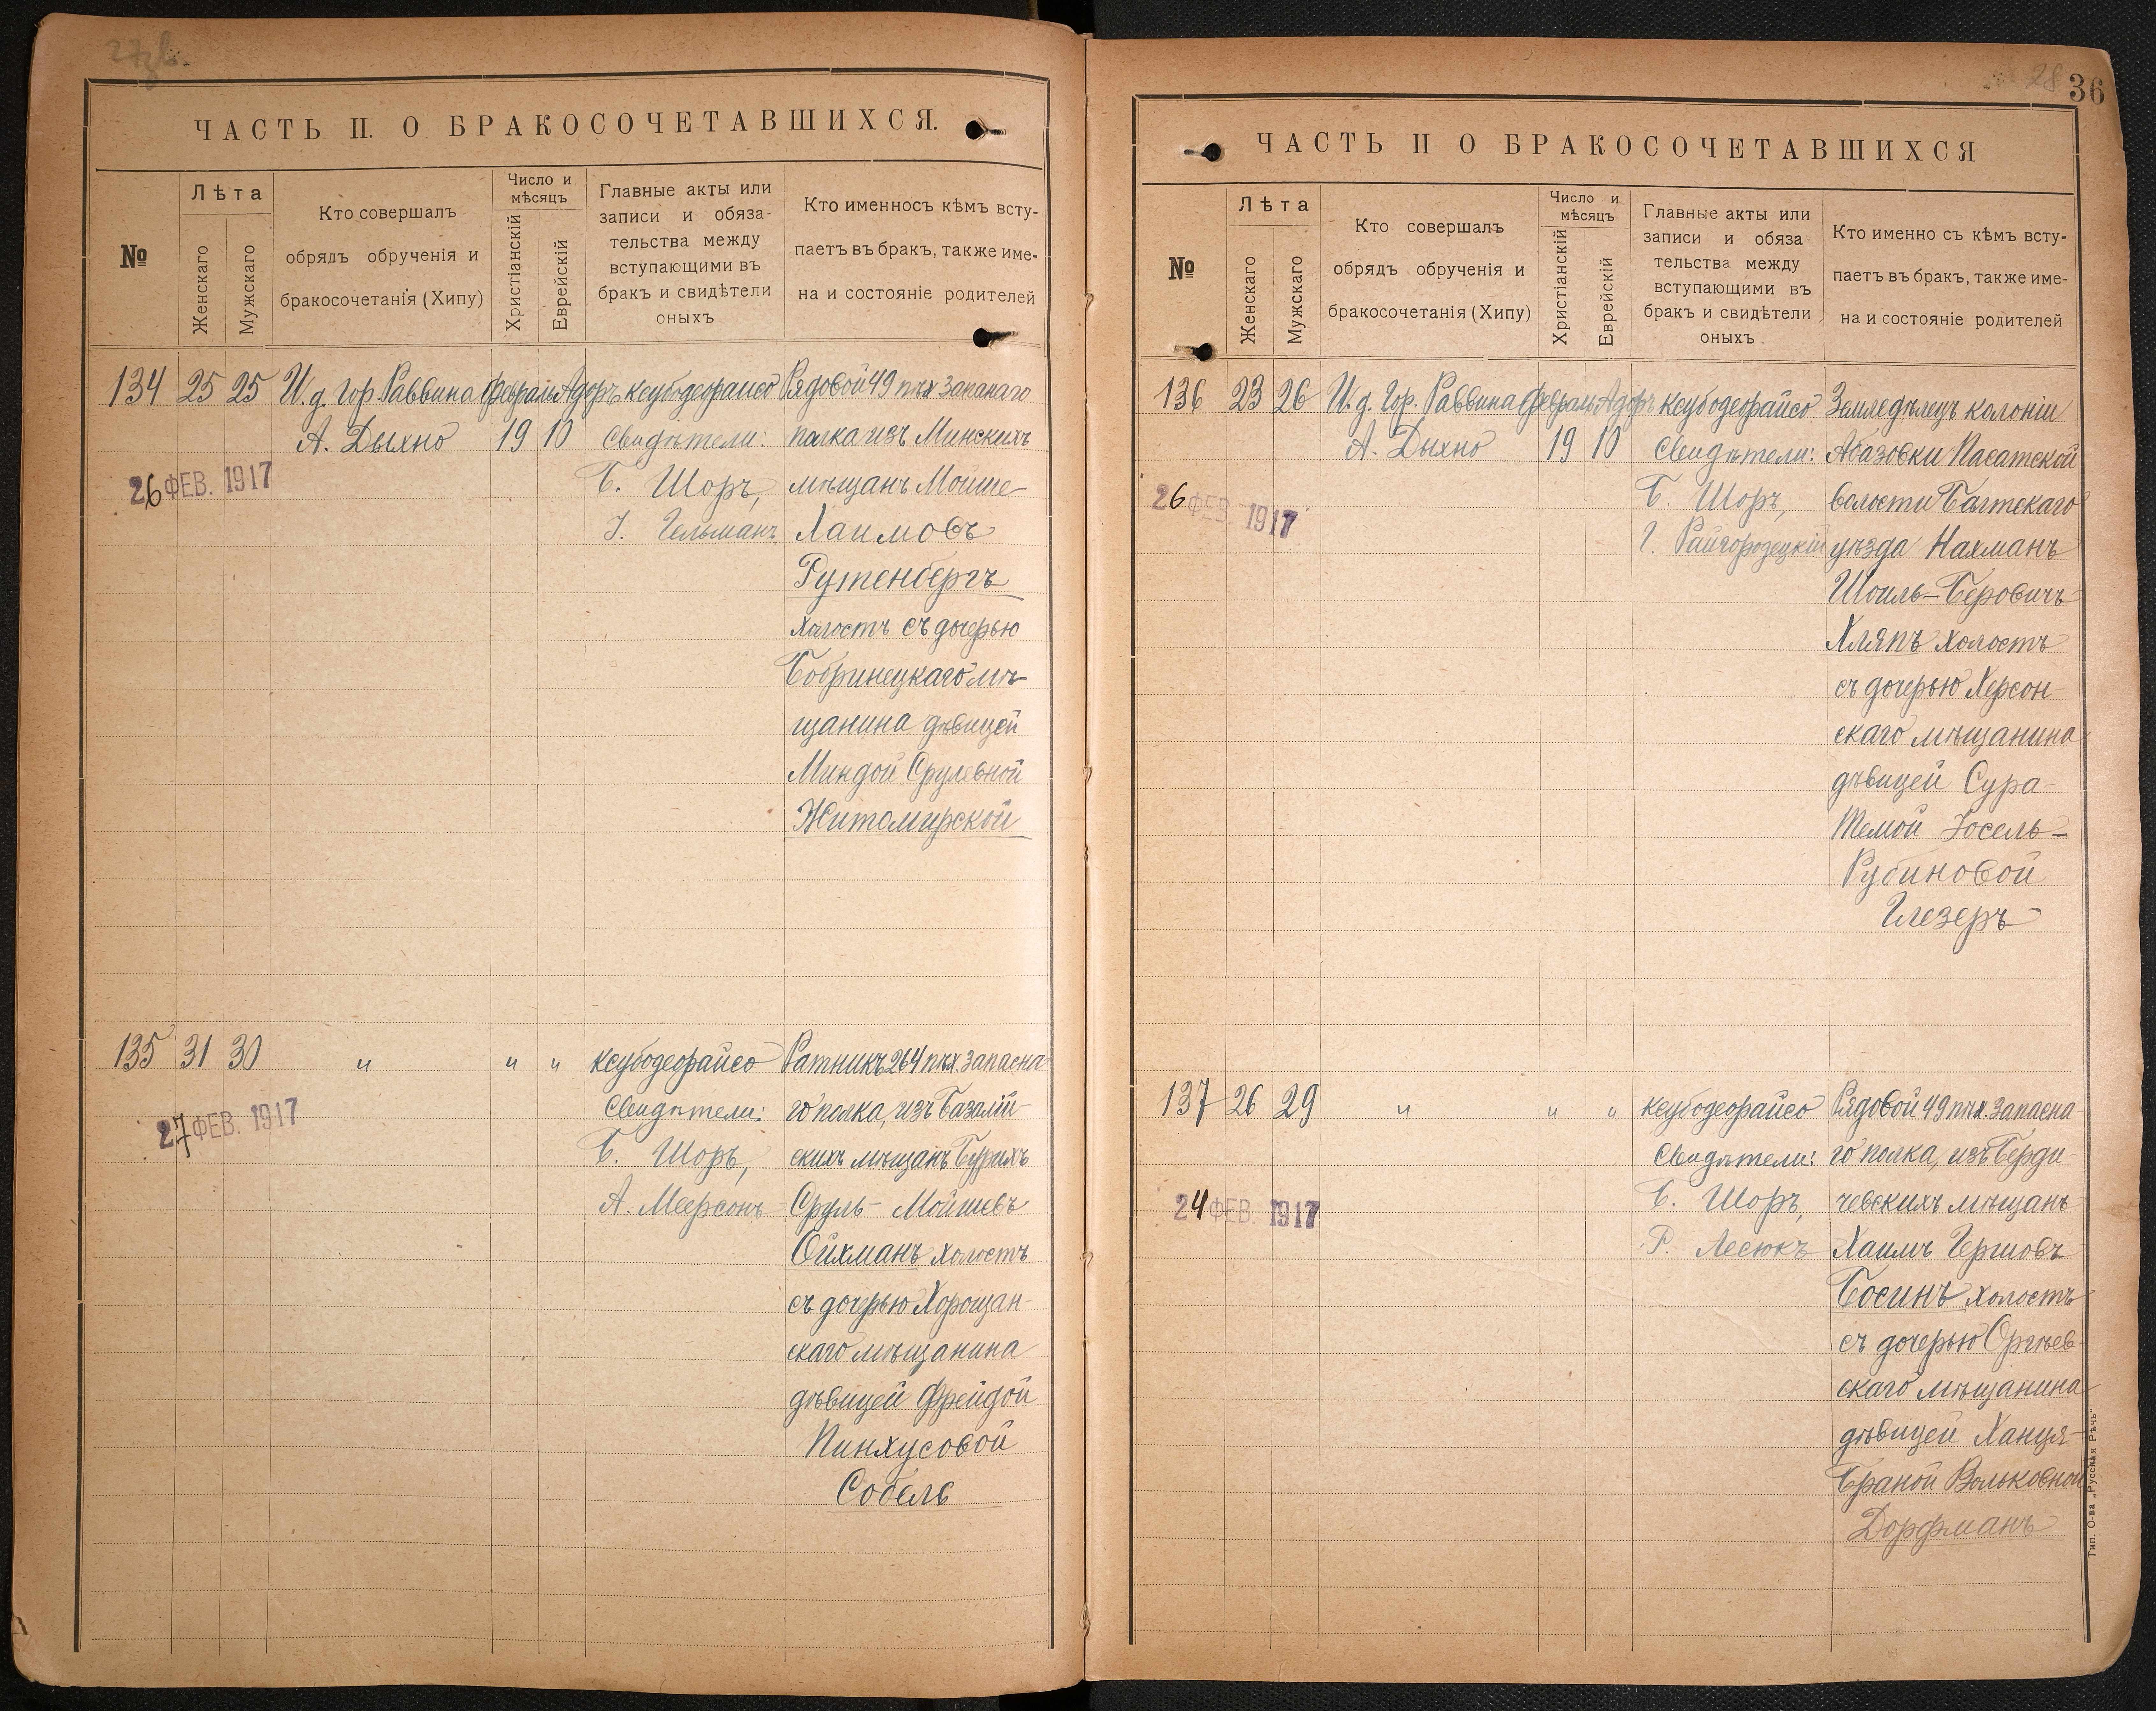 ЧАСТЬ II. О БРАКОСОЧЕТАВШИХСЯ.
№
Лѣта
Женскаго
Мужскаго
Кто совершалъ
обрядъ обрученія и
бракосочетанія (Хипу)
Число и
мѣсяцъ
Христіанскій
Еврейскій
Главные акты или
записи и обяза-
тельства между
вступающими въ
бракъ и свидѣтели
оныхъ
Кто именносъ кѣмъ всту-
паетъ въ бракъ, также име-
на и состояніе родителей
134 25 25 И. д. Гор. Раввина
А. Дыхно
Февраль Адоръ
19 10
26 ФЕВ. 1917
ксубодеорайсо
Свидѣтели:
Б. Шоръ,
І. Гельманъ
Рядовой 49 пѣх запаснаго
полка изъ Минскихъ
мѣщанъ Мойше-
Хаимовъ
Рутенбергъ
холостъ съ дочерью
Бобринецкаго мѣ
щанина дѣвицей
Миндой Срулевной
Житомирской
135 31 30 " " "
27 ФЕВ. 1917
ксубодеорайсо
Свидѣтели:
Б. Шоръ,
А. Меерсонъ
Ратникъ 264 пѣх. запасна-
го полка, изъ Базалій-
скихъ мѣщанъ Бурихъ
Сруль- Мойшевъ
Ойхманъ холостъ
съ дочерью Хорощан-
скаго мѣщанина
дѣвицей Фрейдой
Пинхусовой
Собель
36
28
ЧАСТЬ II О БРАКОСОЧЕТАВШИХСЯ
№
Лѣта
Женскаго
Мужскаго
Кто совершалъ
обрядъ обрученія и
бракосочетанія (Хипу)
Число и
мѣсяцъ
Христіанскій
Еврейскій
Главные акты или
записи и обяза
тельства между
вступающими въ
бракъ и свидѣтели
оныхъ
Кто именно съ кѣмъ всту-
паетъ въ бракъ, также име-
на и состояніе родителей
136 23 26 И. д. Гор. Раввина
А. Дыхно
Февраль Адоръ
19 10
26 ФЕВ. 1917
ксубодеорайсо
Свидѣтели:
Б. Шоръ,
Г. Райгородецкій
Земледѣлецъ колоніи
Абазовки Пасатской
волости Балтскаго
уѣзда Нахманъ
Шоиль-Беровичъ
Хляпъ холостъ
съ дочерью Херсон-
скаго мѣщанина
дѣвицей Сура-
Темой Іосель-
Рубиновой
Глезеръ
137 26 29 " " "
24 ФЕВ. 1917
ксубодеорайсо
Свидѣтели:
Б. Шоръ,
Р. Лесюкъ
Рядовой 49 пѣх. запасна-
го полка, изъ Берди-
чевскихъ мѣщанъ
Хаимъ Гершовъ
Босинъ холостъ
съ дочерью Оргѣев-
скаго мѣщанина
дѣвицей Ханця-
Браной Вольковной
Дорфманъ
Тип. О-ва „Русская Рѣчь"